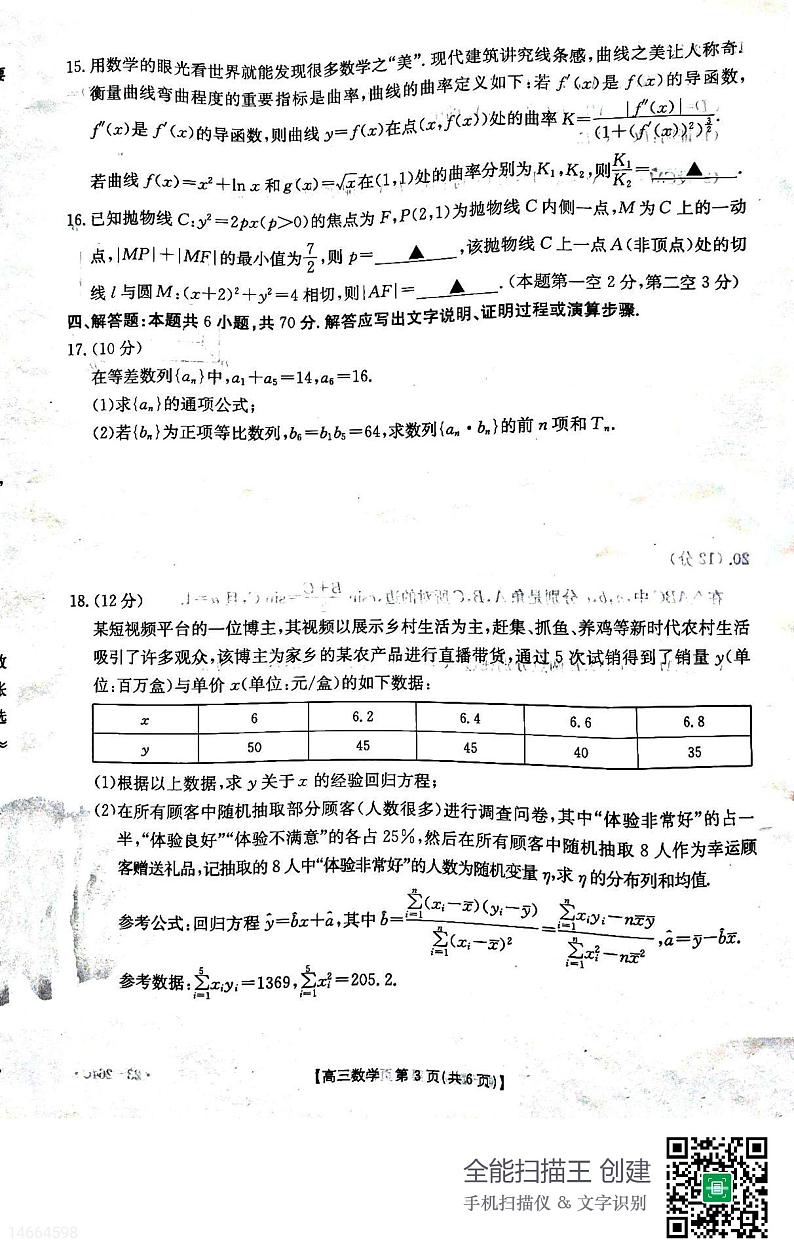 15. 用数学的眼光看世界就能发现很多数学之“美”. 现代建筑讲究线条感,曲线之美让人称奇.
衡量曲线弯曲程度的重要指标是曲率,曲线的曲率定义如下:若 f′(x)是 f(x)的导函数,
f″(x)是 f′(x)的导函数,则曲线 y=f(x)在点(x,f(x))处的曲率 K=|f″(x)|/(1+(f′(x))²)^(3/2).
若曲线 f(x)=x²+ln x 和 g(x)=√x在(1,1)处的曲率分别为 K₁,K₂,则K₁/K₂=____▲____.
16. 已知抛物线 C:y²=2px(p>0)的焦点为 F,P(2,1)为抛物线 C 内侧一点,M 为 C 上的一动
点,|MP|+|MF|的最小值为7/2,则 p=____▲____,该抛物线 C 上一点 A(非顶点)处的切
线 l 与圆 M:(x+2)²+y²=4 相切,则|AF|=____▲____.(本题第一空 2 分,第二空 3 分)
四、解答题:本题共 6 小题,共 70 分. 解答应写出文字说明、证明过程或演算步骤.
17. (10 分)
在等差数列{aₙ}中,a₁+a₅=14,a₆=16.
(1)求{aₙ}的通项公式;
(2)若{bₙ}为正项等比数列,b₆=b₁b₅=64,求数列{aₙ·bₙ}的前 n 项和 Tₙ.
18. (12 分)
某短视频平台的一位博主,其视频以展示乡村生活为主,赶集、抓鱼、养鸡等新时代农村生活
吸引了许多观众,该博主为家乡的某农产品进行直播带货,通过 5 次试销得到了销量 y(单
位:百万盒)与单价 x(单位:元/盒)的如下数据:
x 6 6.2 6.4 6.6 6.8
y 50 45 45 40 35
(1)根据以上数据,求 y 关于 x 的经验回归方程;
(2)在所有顾客中随机抽取部分顾客(人数很多)进行调查问卷,其中“体验非常好”的占一
半,“体验良好”“体验不满意”的各占 25%,然后在所有顾客中随机抽取 8 人作为幸运顾
客赠送礼品,记抽取的 8 人中“体验非常好”的人数为随机变量 η,求 η 的分布列和均值.
参考公式:回归方程 ŷ=b̂x+â,其中 b̂=∑ⁿᵢ₌₁(xᵢ-x̄)(yᵢ-ȳ)/∑ⁿᵢ₌₁(xᵢ-x̄)²=(∑ⁿᵢ₌₁xᵢyᵢ-nx̄ȳ)/(∑ⁿᵢ₌₁xᵢ²-nx̄²),â=ȳ-b̂x̄.
参考数据:∑⁵ᵢ₌₁xᵢyᵢ=1369,∑⁵ᵢ₌₁xᵢ²=205.2.
【高三数学 第 3 页(共 6 页)】
全能扫描王 创建
手机扫描仪 & 文字识别
14664598